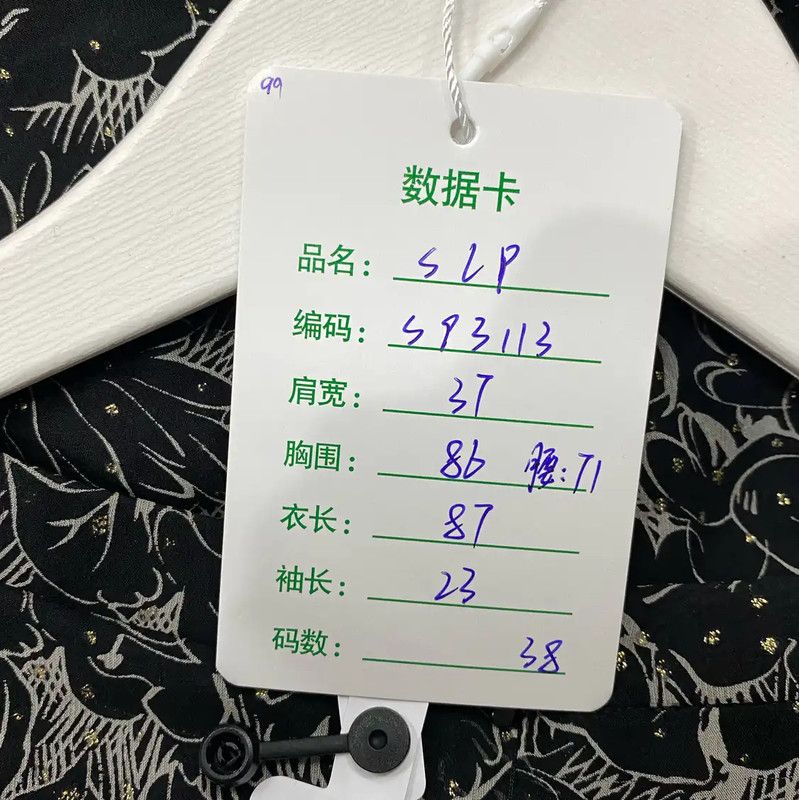 99
数据卡
品名: SLP
编码: SP3113
肩宽: 37
胸围: 86 腰:71
衣长: 87
袖长: 23
码数: 38